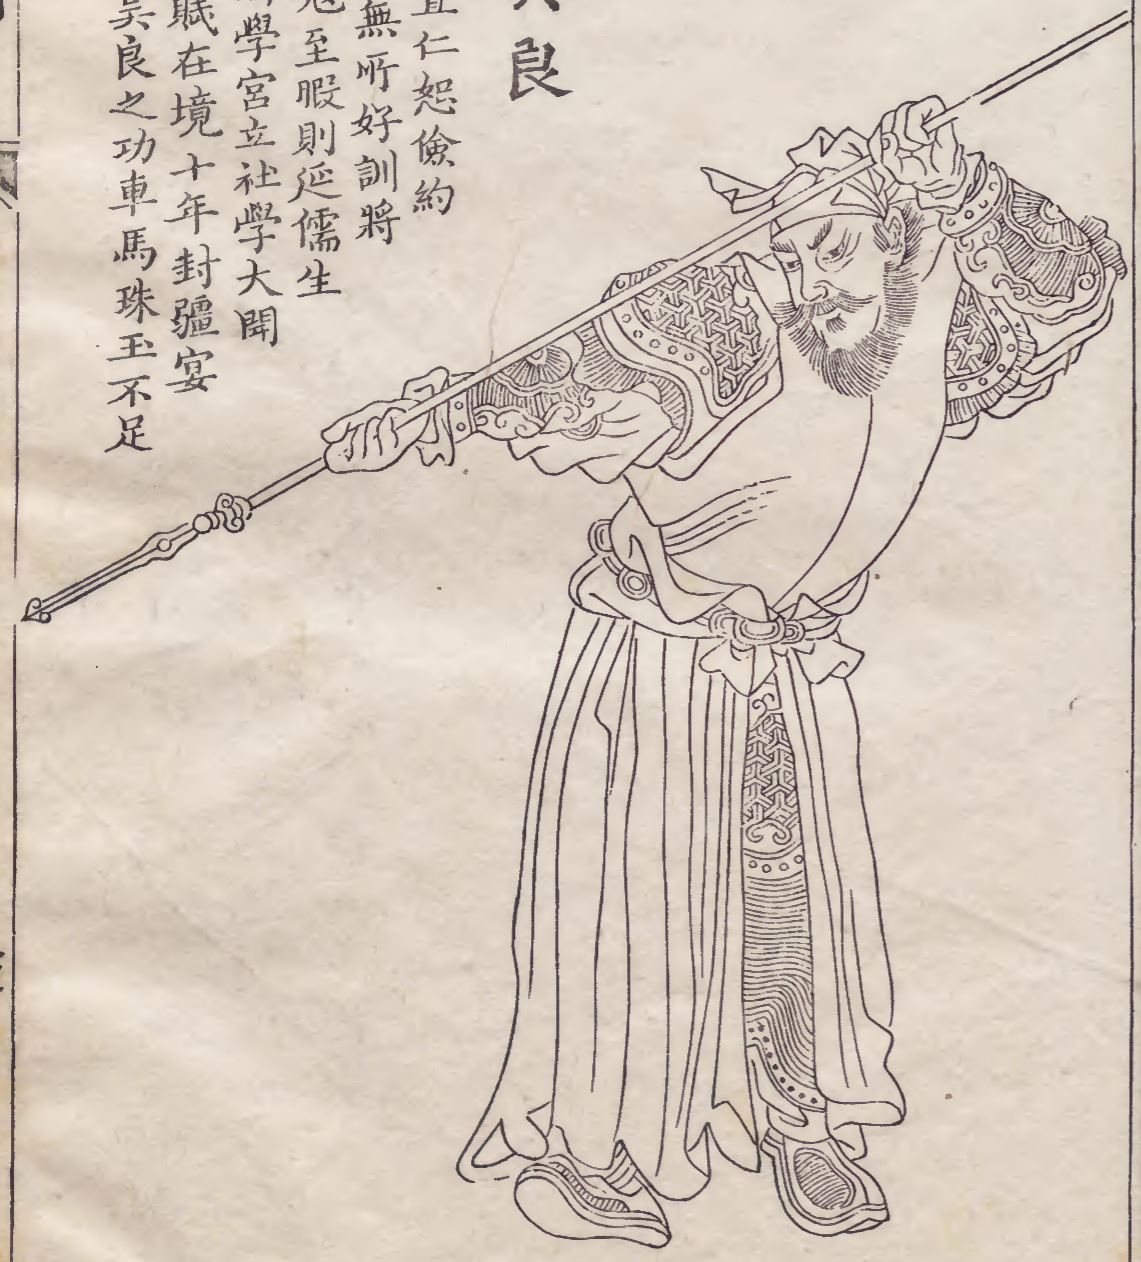 良
仁恕儉約
無所好訓將
至暇則延儒生
學宮立社學大闢
賊在境十年封疆宴
吳良之功車馬珠玉不足